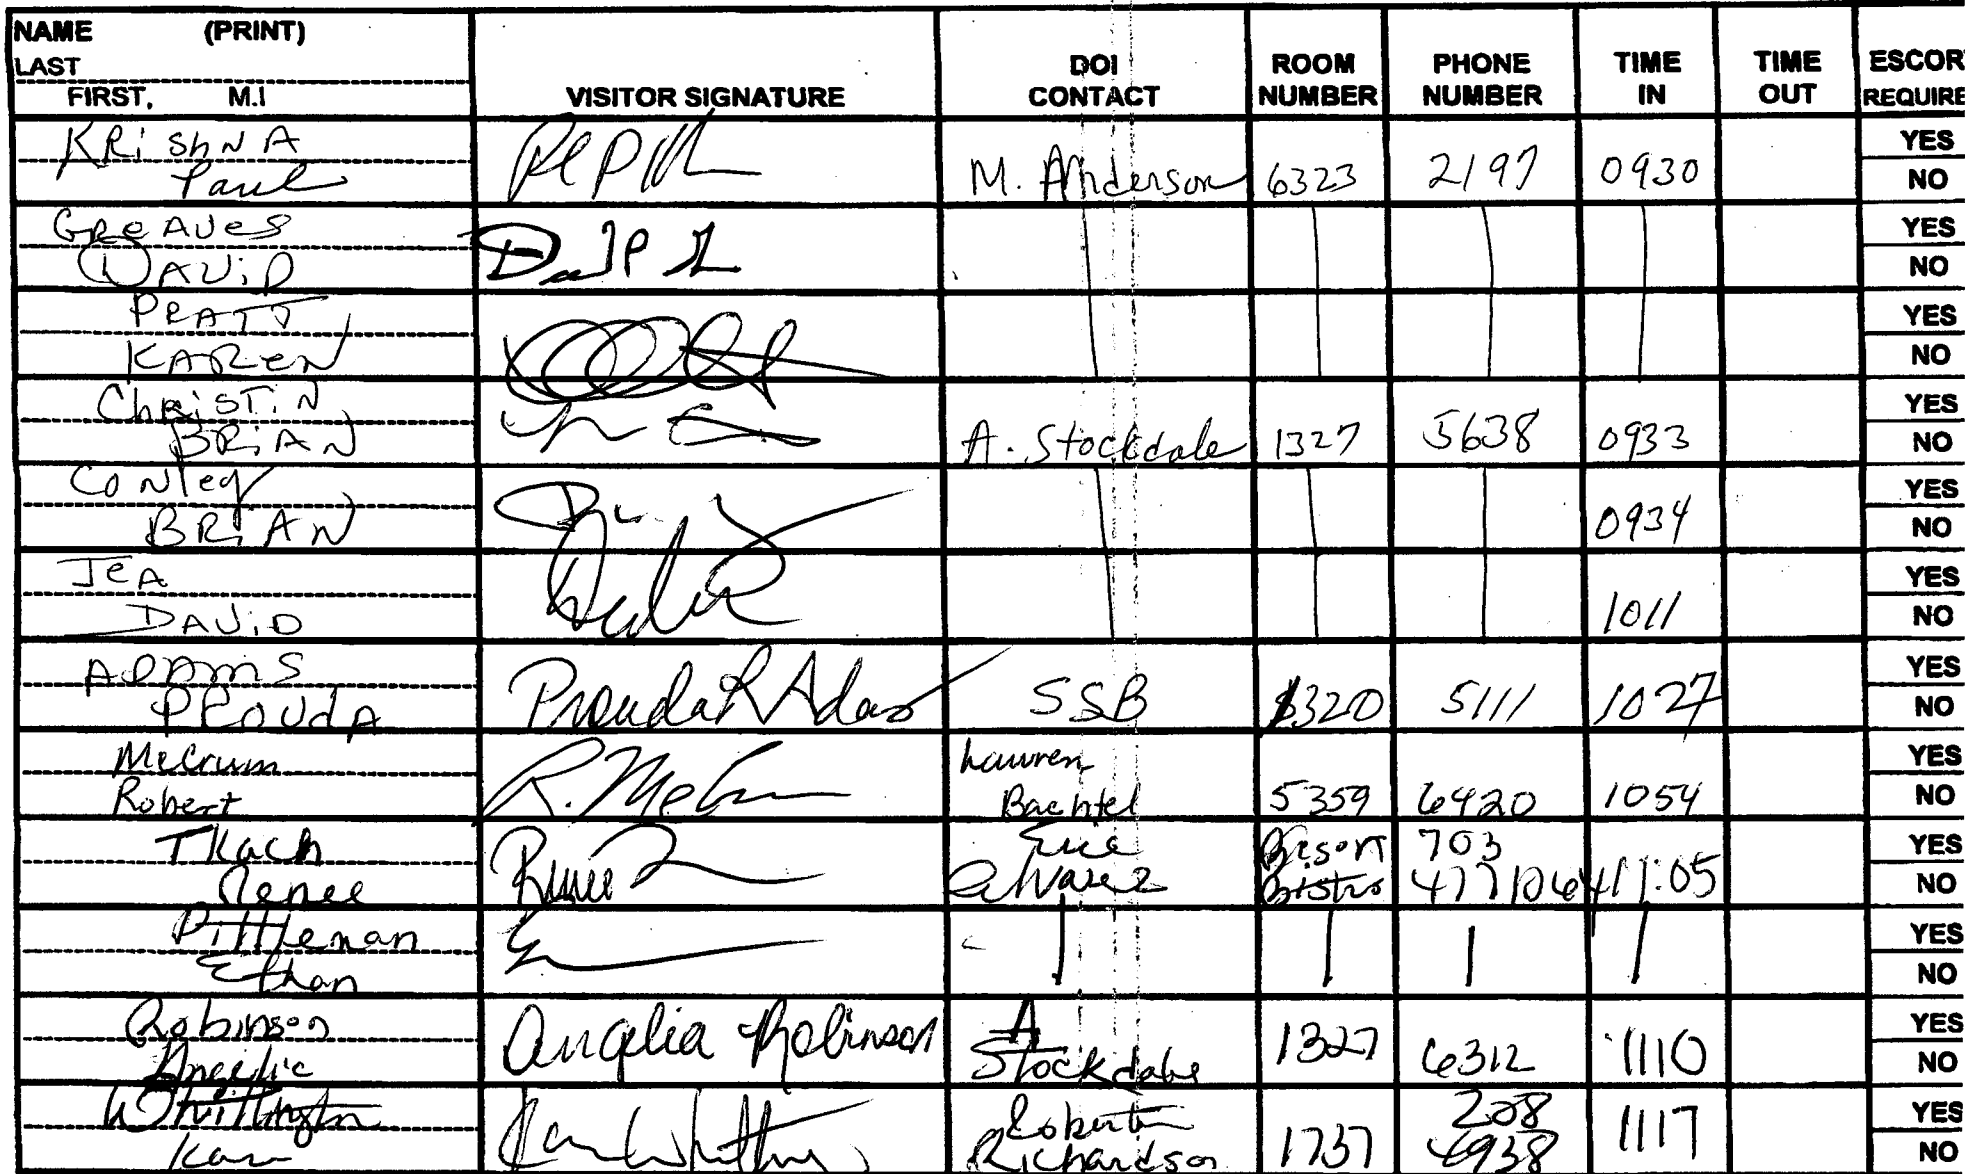 NAME (PRINT)
LAST
FIRST, M.I
VISITOR SIGNATURE
DOI
CONTACT
ROOM
NUMBER
PHONE
NUMBER
TIME
IN
TIME
OUT
ESCOR
REQUIRE
KRishNA
Paul
M. Anderson 6323 2197 0930
YES
NO
GReAves
DAViD
YES
NO
PRATT
KAREN
YES
NO
ChRiSTiN
BRiAN
A. Stockdale 1327 5638 0933
YES
NO
CoNley
BRiAN
0934
YES
NO
JeA
DAViD
1011
YES
NO
ADAmS
PROUdA
ProudaR Adams
SSB 1320 5111 1027
YES
NO
McCrum
Robert
R.
Lauren
Bachtel
5359 6420 1054
YES
NO
TKach
Renee
Renee
Alvarez
Bison
Bistro
703
4771064
11:05
YES
NO
Pittleman
Ethan
YES
NO
Robinson
Angelia
Angelia Robinson
A
Stockdale
1327 6312 1110
YES
NO
Whittington
Kara
Richardson
1737
208
6938
1117
YES
NO